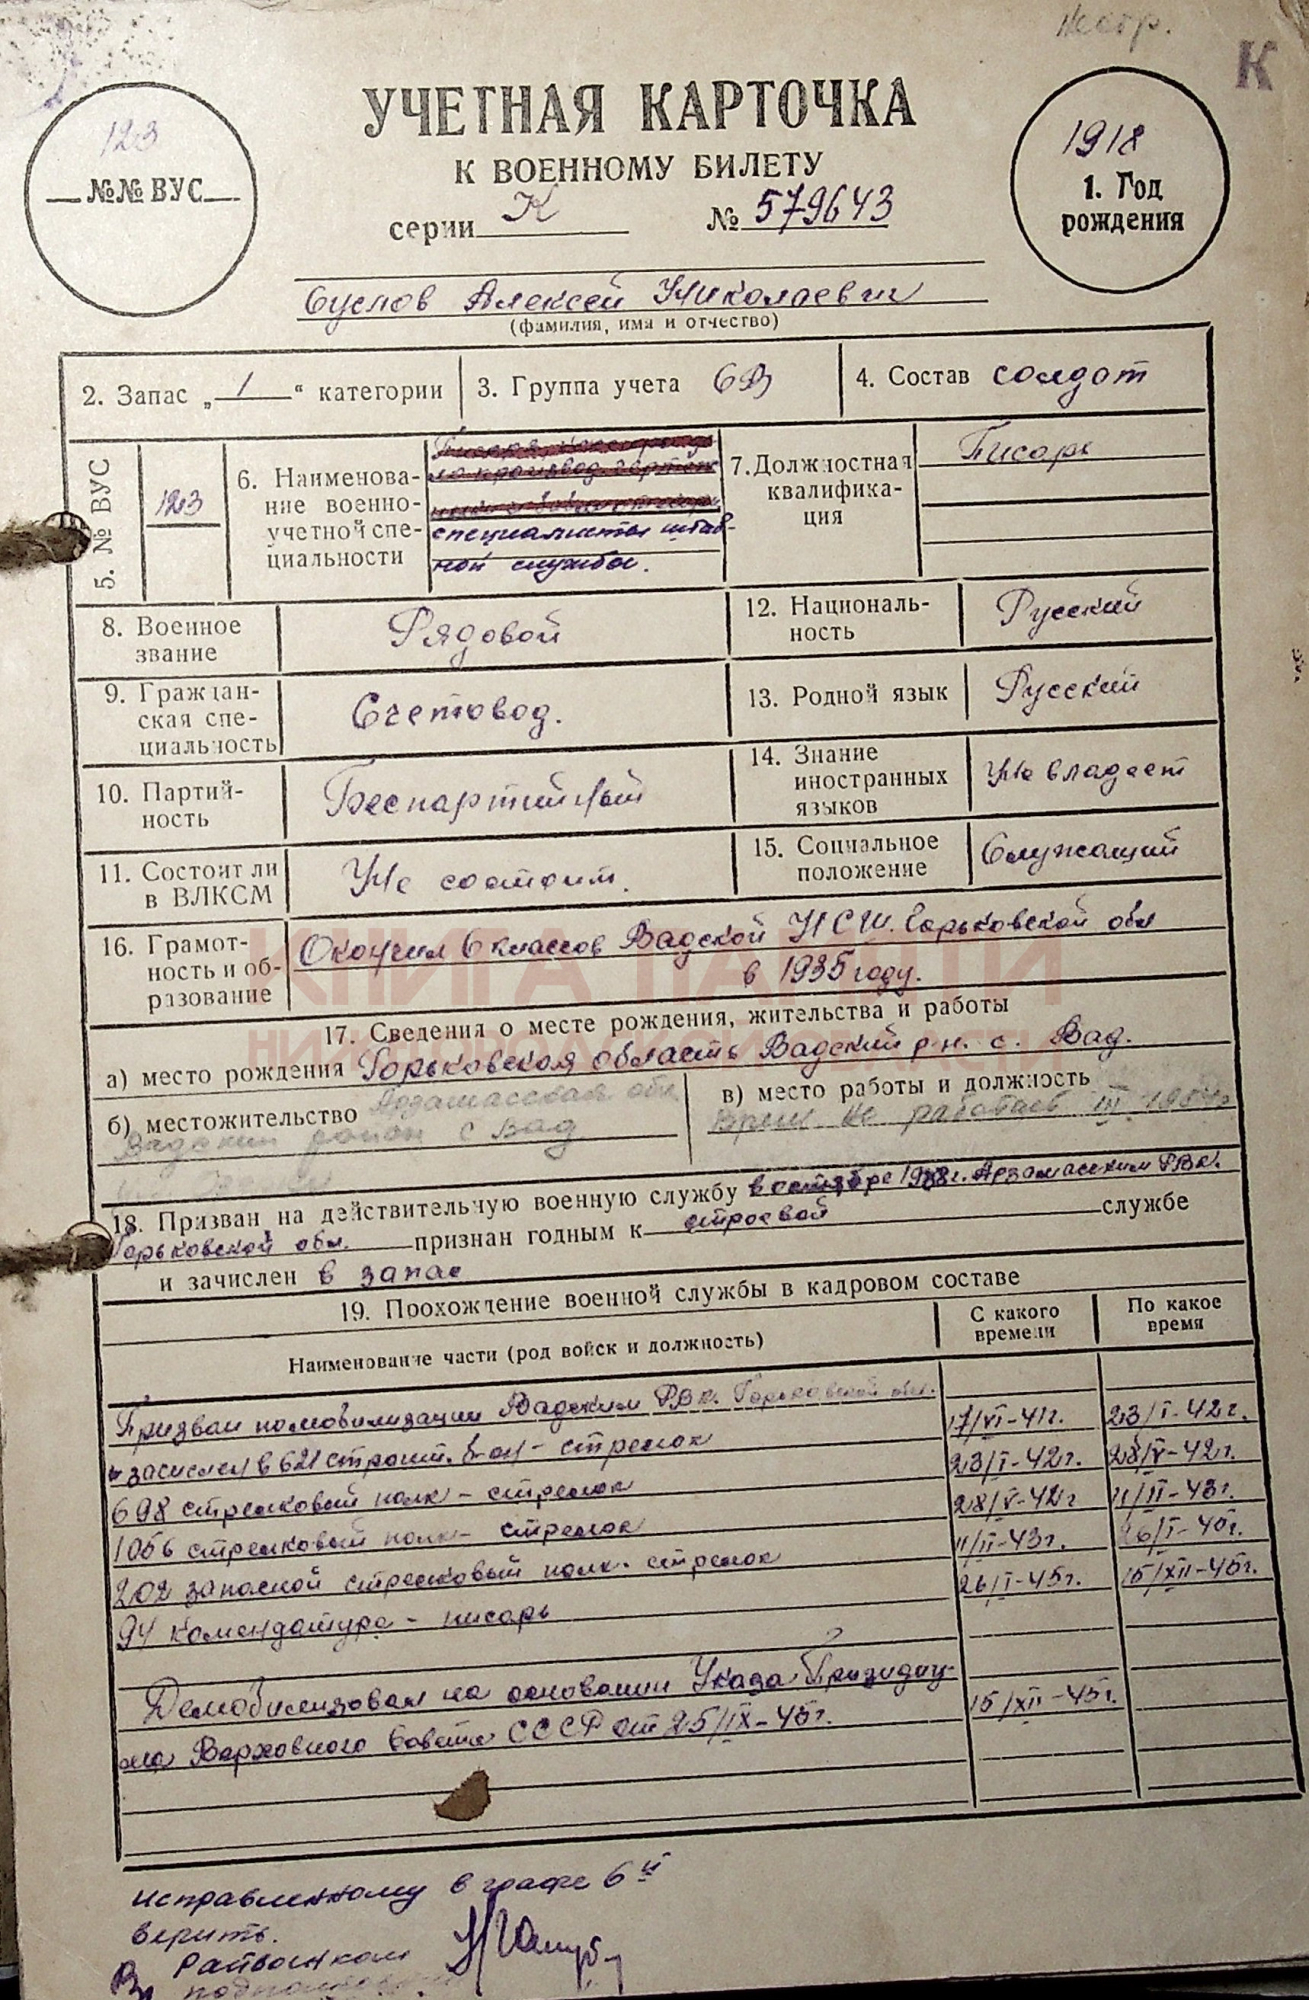 К
УЧЕТНАЯ КАРТОЧКА
К ВОЕННОМУ БИЛЕТУ
серии К № 579643
123
№№ ВУС
1918
1. Год
рождения
Суслов Алексей Николаевич
(фамилия, имя и отчество)
2. Запас „1“ категории
3. Группа учета СВ
4. Состав солдат
5. № ВУС
123
6. Наименова-
ние военно-
учетной спе-
циальности
специалисты штаб-
ной службы.
7. Должностная
квалифика-
ция
Писарь
8. Военное
звание
Рядовой
12. Националь-
ность
Русский
9. Граждан-
ская спе-
циальность
Счетовод.
13. Родной язык
Русский
10. Партий-
ность
Беспартийный
14. Знание
иностранных
языков
Не владеет
11. Состоит ли
в ВЛКСМ
Не состоит.
15. Социальное
положение
Служащий
16. Грамот-
ность и об-
разование
Окончил 6 классов Вадской НСШ. Горьковской обл
в 1935 году.
КНИГА ПАМЯТИ
НИЖЕГОРОДСКОЙ ОБЛАСТИ
17. Сведения о месте рождения, жительства и работы
а) место рождения Горьковская область Вадский р-н. с. Вад.
б) местожительство Арзамасская обл.
Вадский район с Вад
в) место работы и должность
Врем. не работает III
18. Призван на действительную военную службу в октябре 1938г. Арзамасским РВк.
Горьковской обл. признан годным к строевой службе
и зачислен в запас
19. Прохождение военной службы в кадровом составе
Наименование части (род войск и должность)
С какого
времени
По какое
время
Призван по мобилизации Вадским РВк. Горьковской обл.
зачислен в 621 строит. б-он - стрелок 17/VI-41г. 23/I-42г.
698 стрелковый полк - стрелок 23/I-42г. 28/V-42г.
1056 стрелковый полк - стрелок 28/V-42г 11/II-43г.
202 запасной стрелковый полк. стрелок 11/II-43г. 26/I-45г.
94 комендатура - писарь 26/I-45г. 15/XII-45г.
Демобилизован на основании Указа Призидиу-
ма Верховного Совета СССР от 25/IX-45г. 15/XII-45г.
исправленному в графе 6й
верить.
Райвоенком